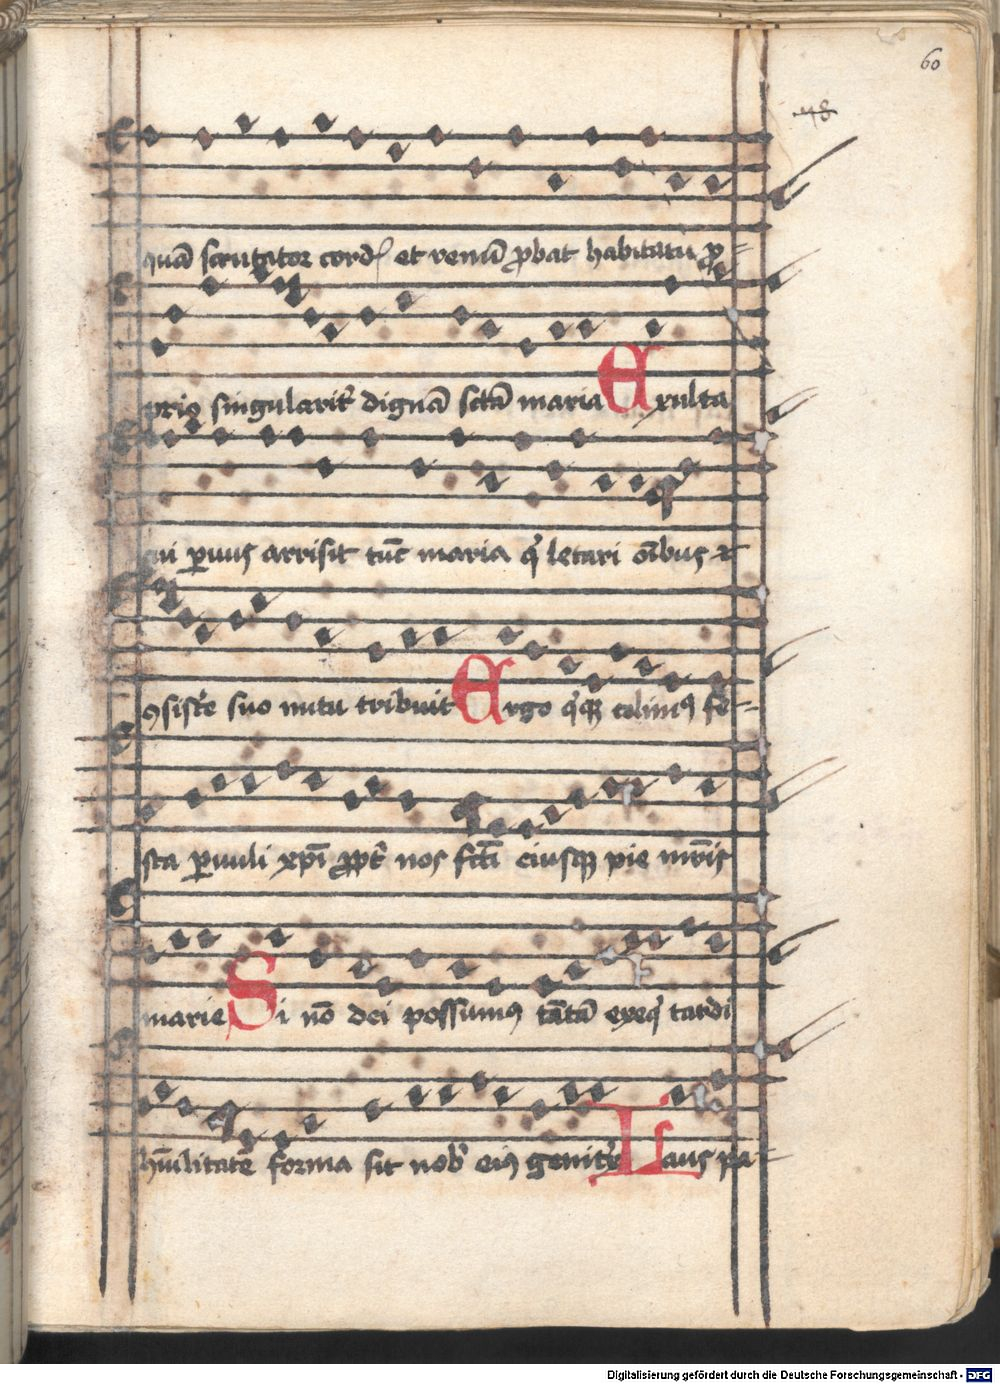 60
48
quā scrutator cord et renū ꝓbat habitatū ꝓ=
prio singularit᷑ dignā sctā maria Exulta
cui ꝑuus arrisit tūc maria q̄ letari oībus ⁊
ꝯsist᷑e suo nutu tribuit Ergo q̄qꝫ colimꝰ fe=
sta ꝑuuli xpī ꝓpt᷑ nos fctī eiusqꝫ pie mr̄is
marie Si nō dei possumꝰ tātā exeq̄ tardi
hūilitatē forma sit nob᷑ eiꝰ genit᷑x Laus pa
Digitalisierung gefördert durch die Deutsche Forschungsgemeinschaft - DFG